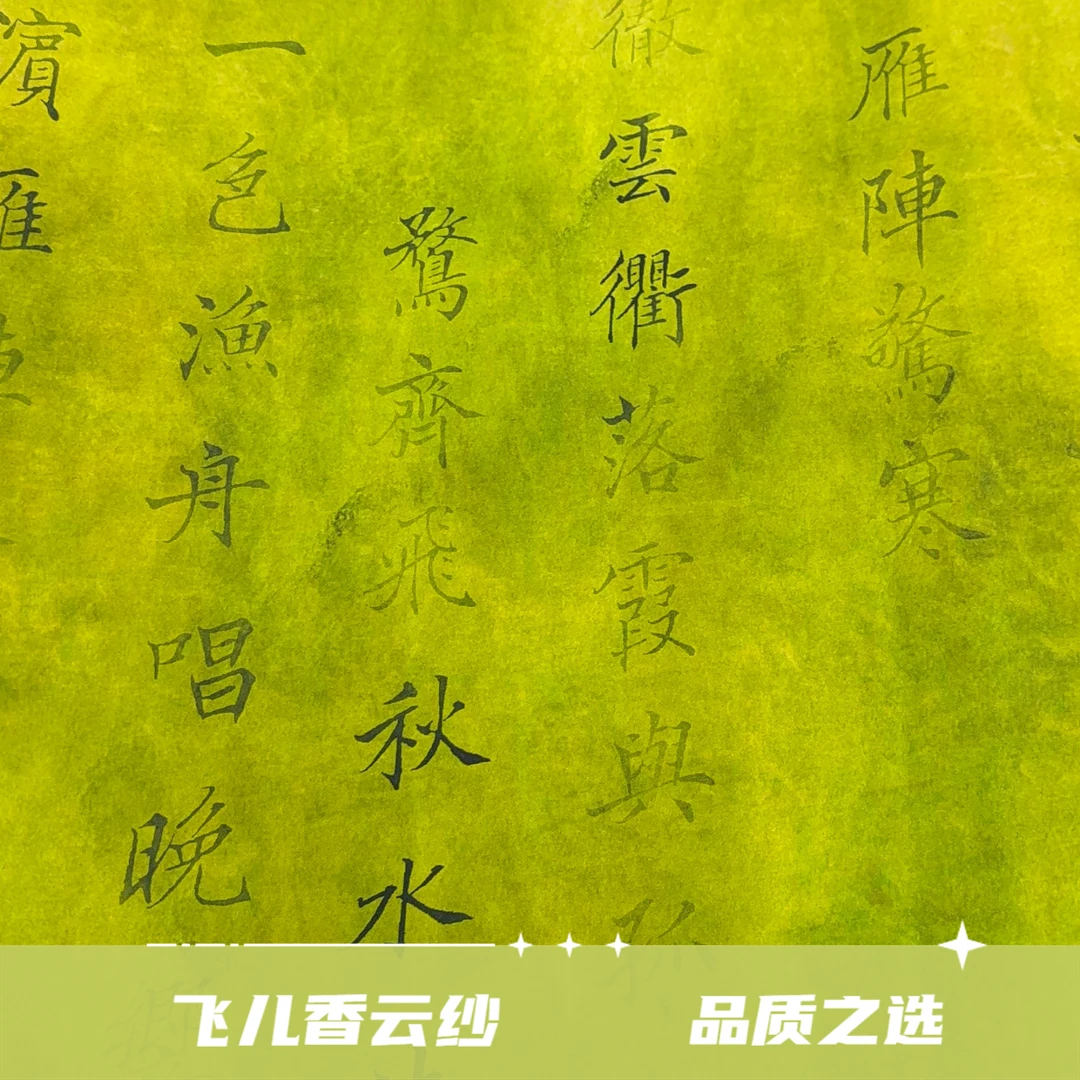 雁陣驚寒
徹雲衢落霞與孤
鶩齊飛秋水
一色漁舟唱晚響
濱雁
飞儿香云纱
品质之选